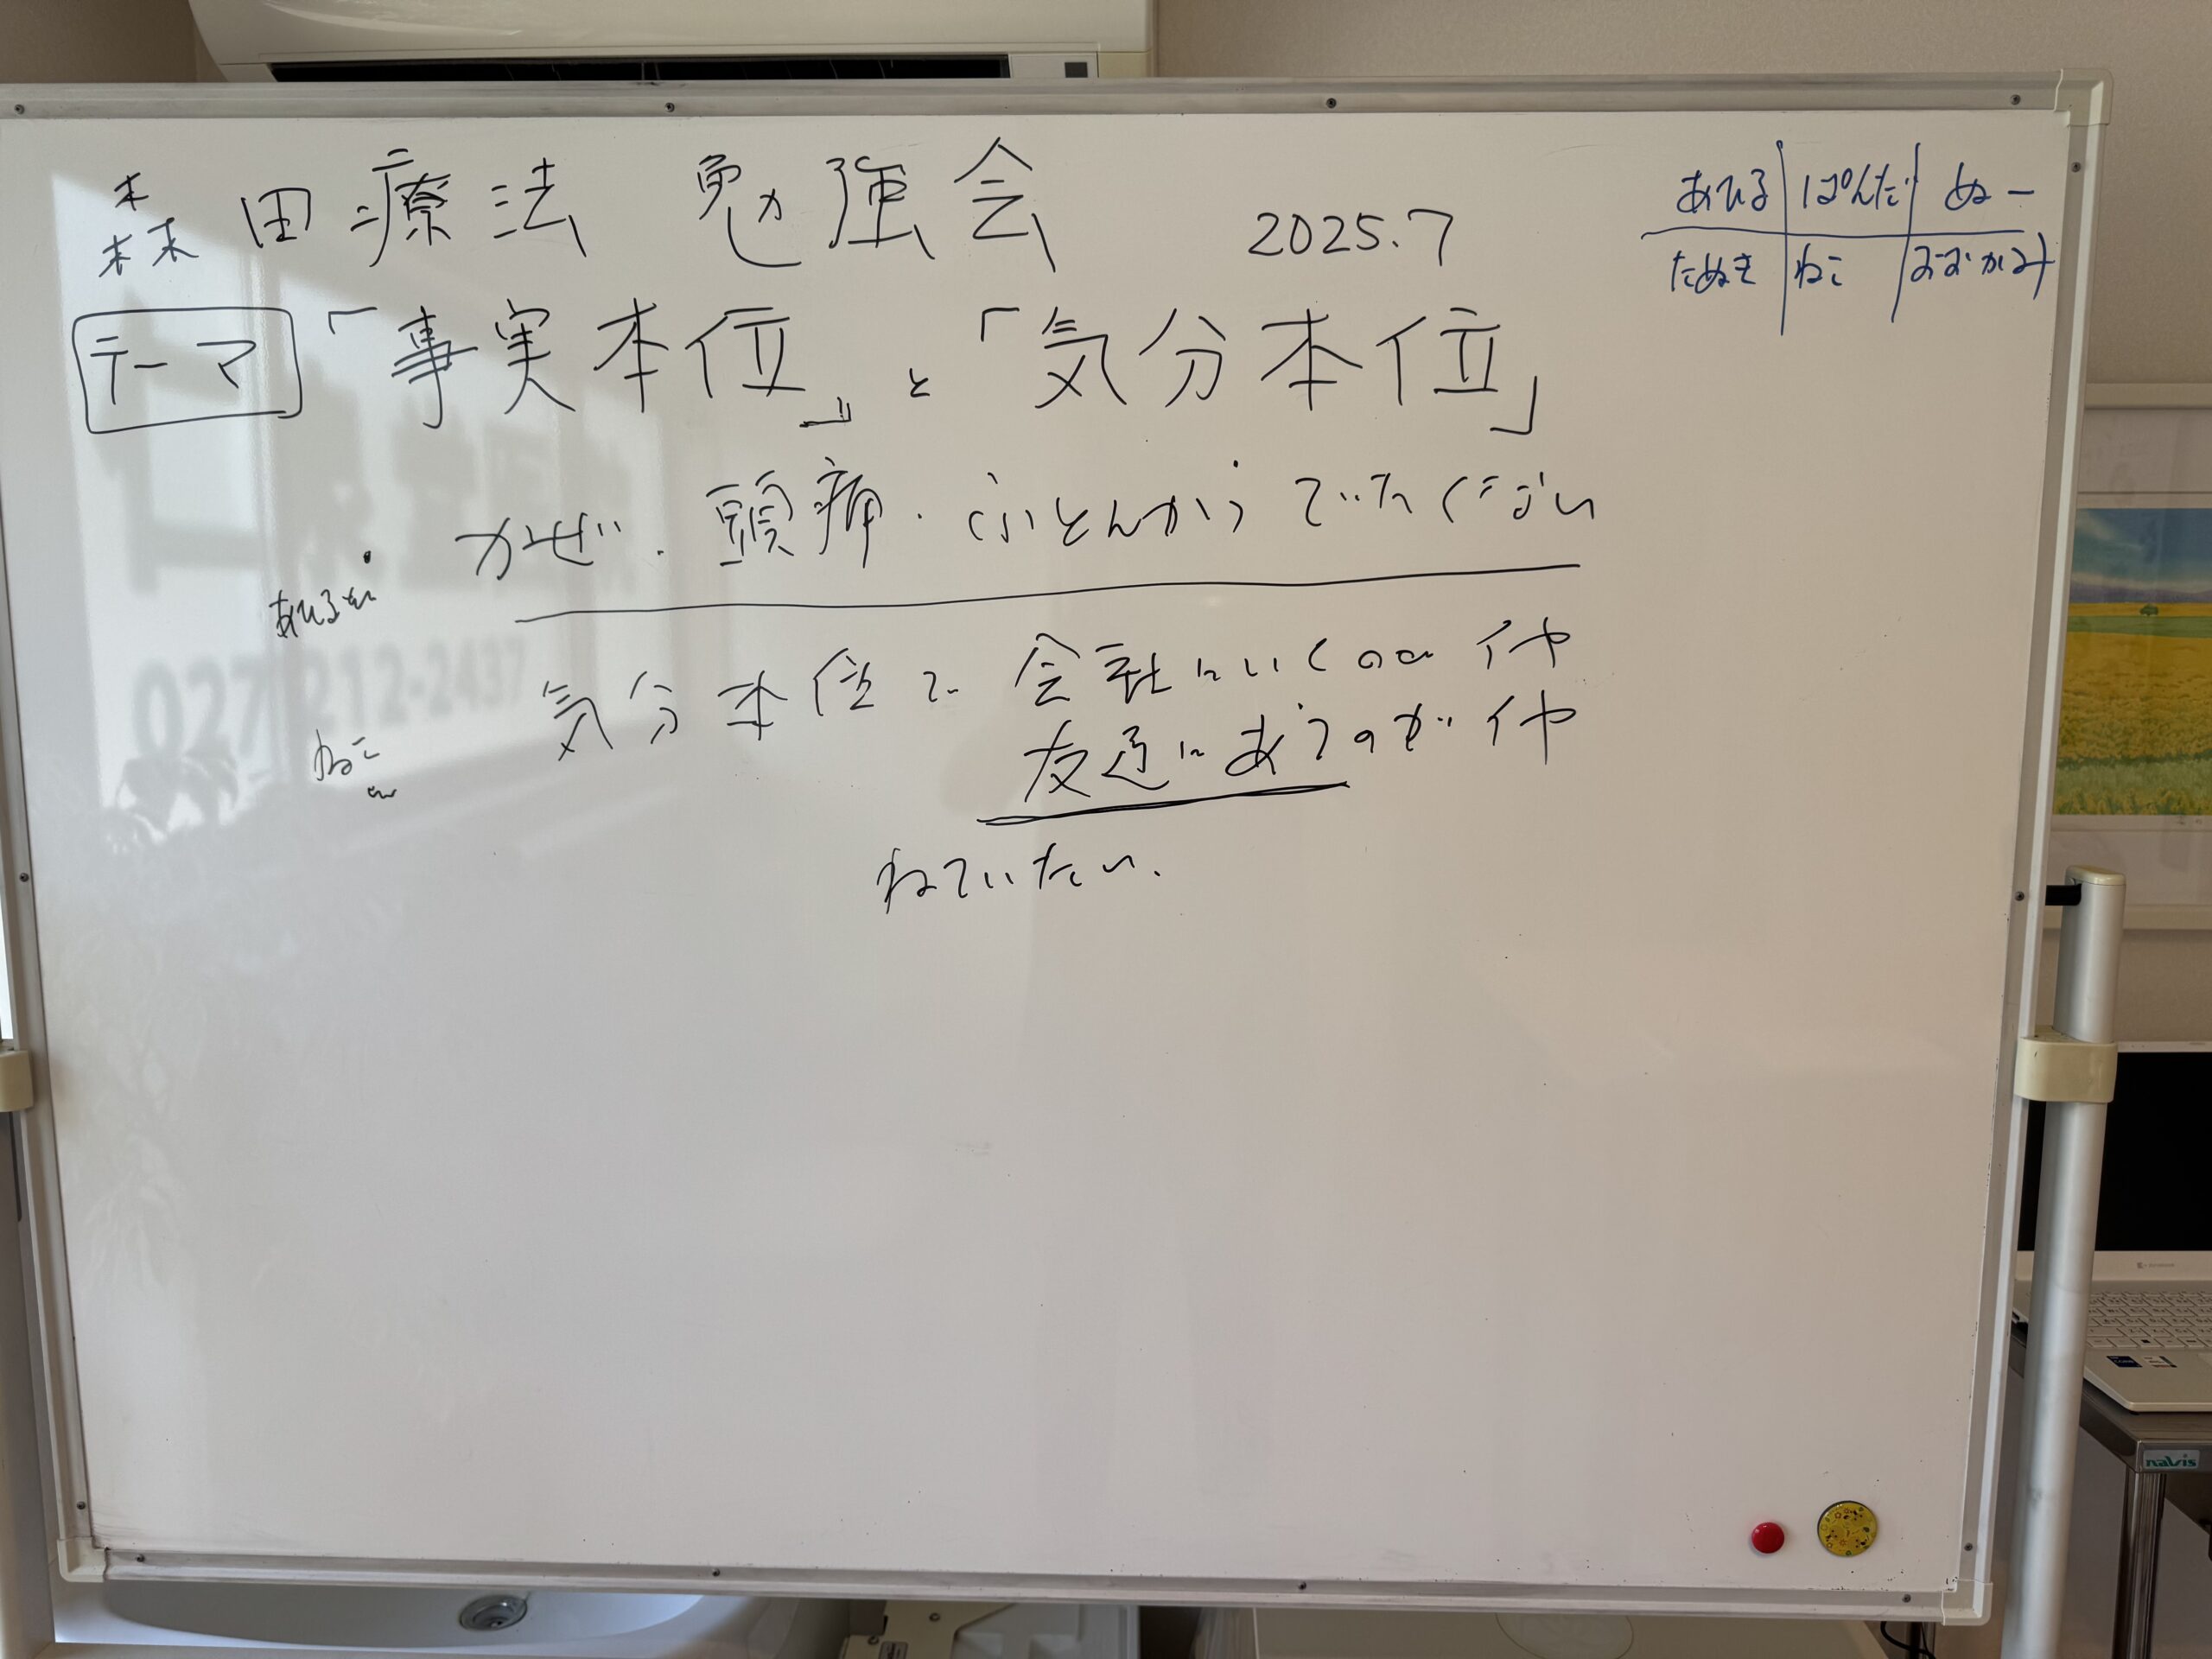 森田療法 勉強会 2025.7
あひる ぱんだ ぬー
たぬき ねこ おおかみ
テーマ 「事実本位」と「気分本位」
かぜ・頭痛・ふとんからでたくない
あひる
気分本位で 会社にいくのが イヤ
ねこ
友達にあうのが イヤ
ねていたい.
027 212-2437
navis